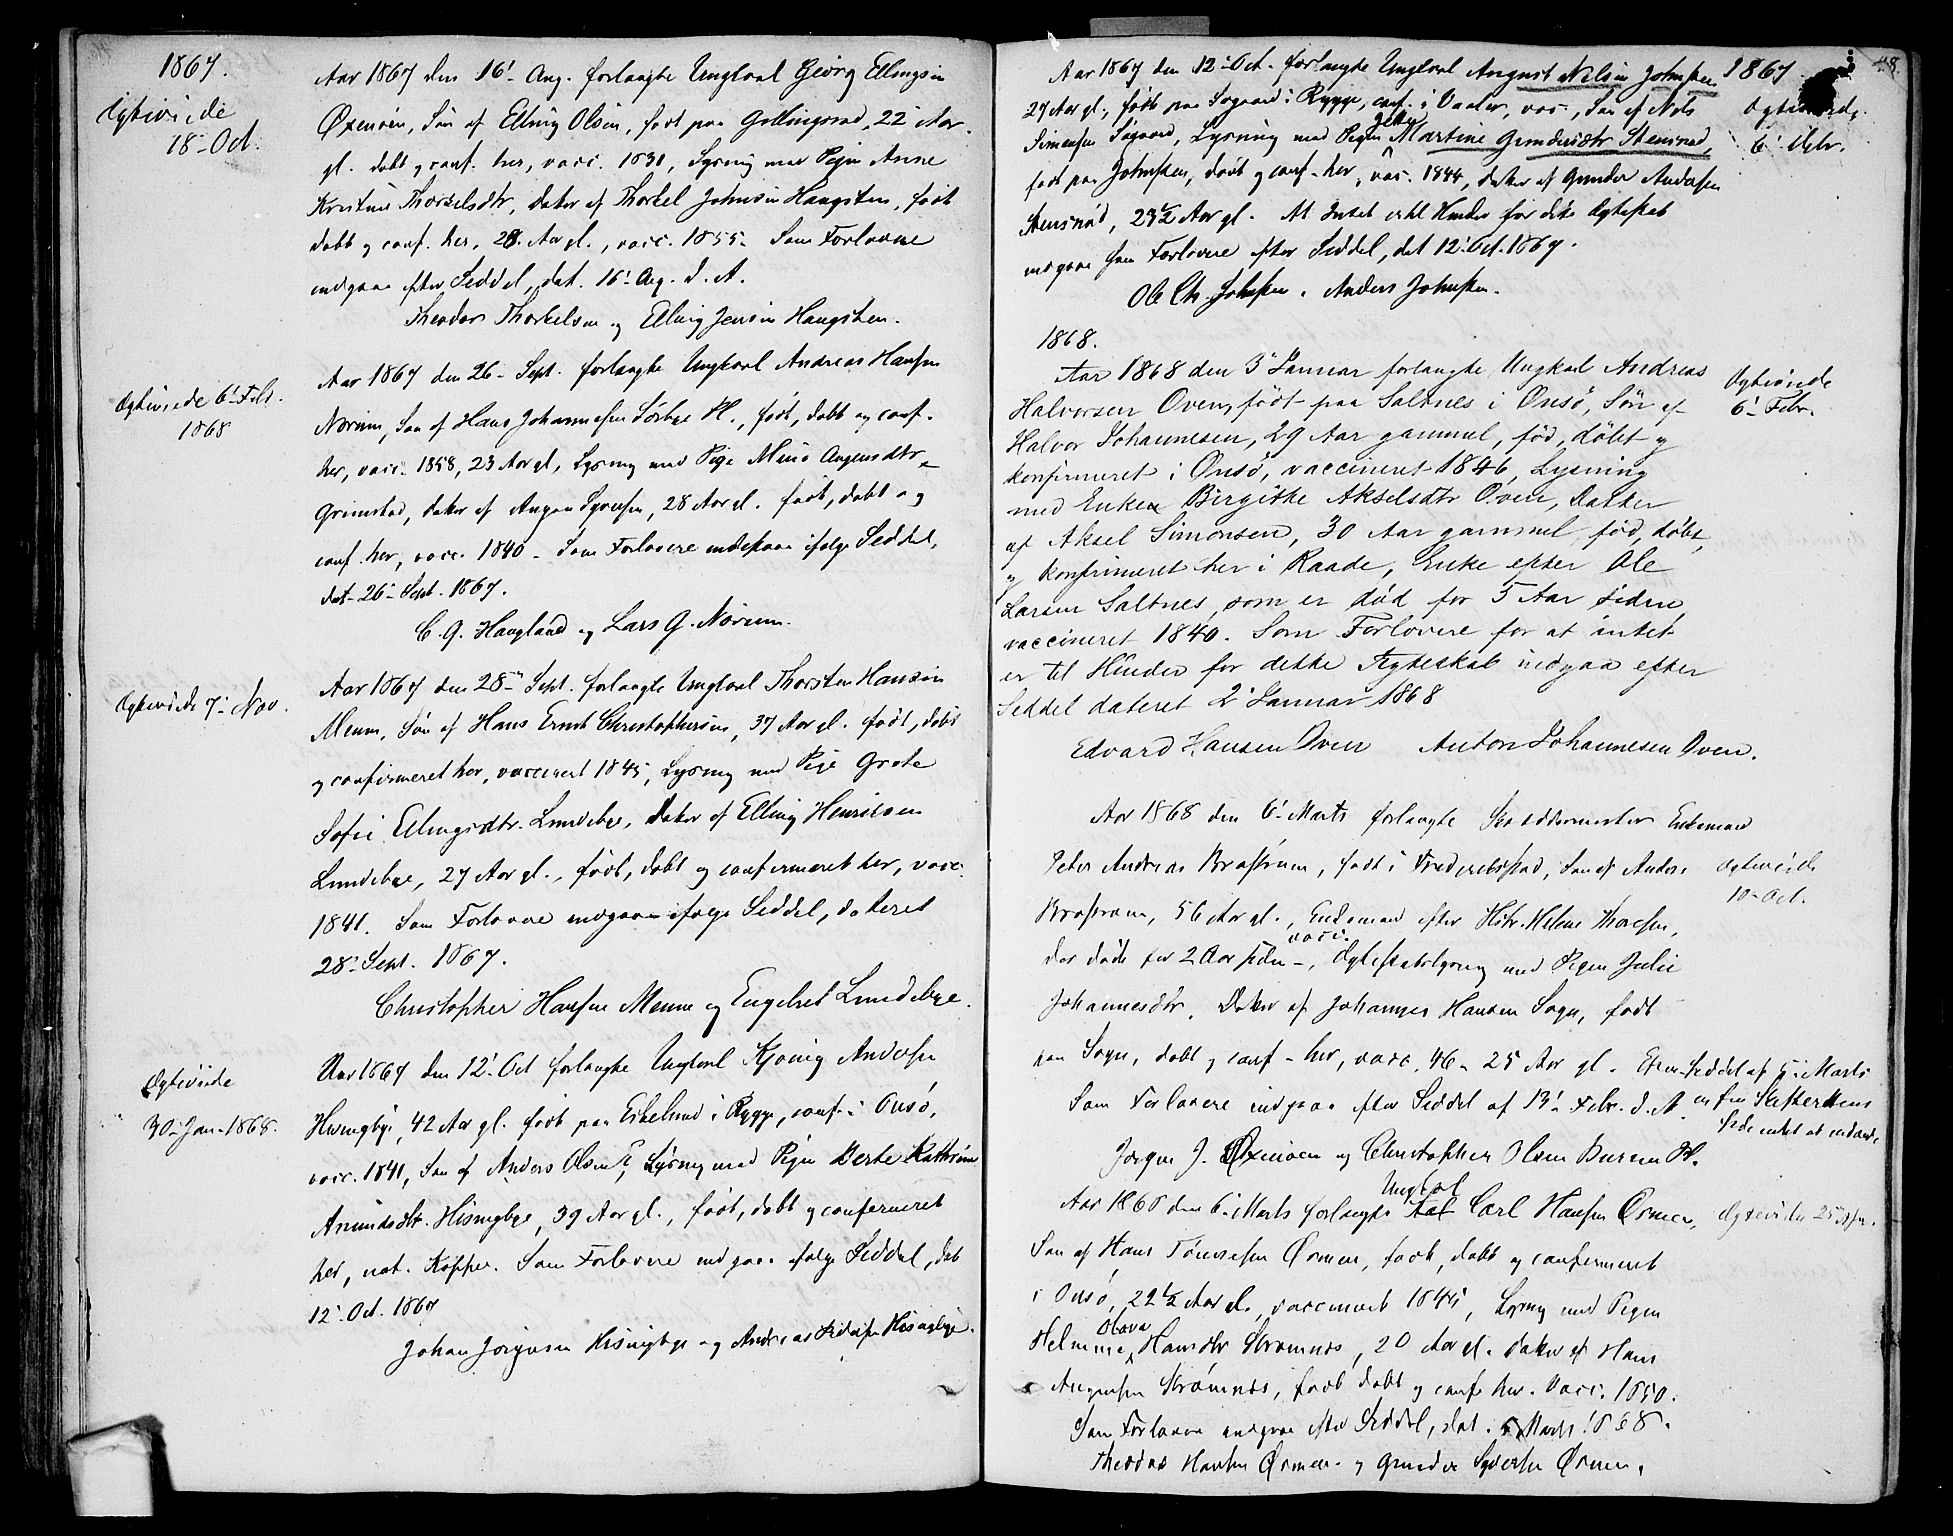 1867.
Ægteviede
18- Oct.
Aar 1867 den 16' Aug. forlangte Ungkarl Georg Ellingsen
Øxenøen, Søn af Elling Olsen, født paa Gillingsrød, 22 Aar
gl. døbt og conf. her, vacc. , Lysning med Pigen Anne
Kristine Thorkelsdtr, Datter af Thorkel Johnsen Haugsten, født
døbt og conf. her, 28 Aar gl., vacc. 1855- Som Forlovere
indgaae efter Seddel, dat. 16' Aug. d. A.
Theodor Thorkelsen og Elling Jensen Haugsten.
Ægteviede 6' Febr.
1868
Aar 1867 den 26- Sept. forlangte Ungkarl Andreas Hansen
Norum, Søn af Hans Johannesen Sørbye , født, døbt og conf.
her, vacc. 1858, 23 Aar gl, Lysning med Pige Mina
Grimstad, Datter af Syversen, 28 Aar gl. født, døbt og
conf. her, vacc. 1840 - Som Forlovere indestaae ifølge Seddel,
dat- 26- Sept. 1867.
C. G. Haugland og Lars G. Norum.
Ægteviede 7- Nov.
Aar 1867 den 28- Sept. forlangte Ungkarl Thorsten Hansen
Menne, Søn af Hans Ernst Christophersen, 37 Aar gl. født, døbt
og confirmeret her, vaccineret 1845, Lysning med Pige Grete
Sofie Ellingsdtr. Lundebye, Datter af Elling Henriksen
Lundebye, 27 Aar gl., født, døbt og confirmeret her, vacc.
1841. Som Forlovere indgaae ifølge Seddel, dateret
28- Sept. 1867.
Christopher Hansen Menne og Engelret Lundebye.
Ægteviede
30- Jan- 1868.
Aar 1867 den 12' Oct forlangte Ungkarl Andersen
Hisingbye, 42 Aar gl. født paa Eskelund i Rygge, conf. i Onsø,
vacc. 1841, Søn af Anders Olsen, Lysning med Pigen Berte Kathrine
Amundsdtr. Hisingbye, 39 Aar gl., født, døbt og confirmeret
her, nat. Kopper. Som Forlovere indgaae ifølge Seddel, dat
12' Oct. 1867
Johan Jørgensen Hisingbye og Andreas Hisingbye.
48.
Aar 1867 den 12- Oct. forlangte Ungkarl August Nilsen Johnsten 1867
27 Aar gl., født paa Søgaard i Rygge, conf. i Vaaler, vacc., Søn af Nils
Simensen Søgaard, Lysning med Pigen Martine Gundersdtr Stensrød,
født paa Johnsten, døbt og conf. her, vac. 1844, Datter af Gunder Andersen
Stensrød, 23 1/2 Aar gl. At Intet er til Hinder for dette Ægteskab
indgaae som Forlovere efter Seddel, dat 12' Oct. 1867.
Ole Chr. Johnsten. Anders Johnsten.
Ægteviede
6'
1868.
Aar 1868 den 3' Januar forlangte Ungkarl Andreas
Halvorsen Oven, født paa Saltnes i Onsø, Søn af
Halvor Johannesen, 29 Aar gammel, fød, døbt og
konfirmeret i Onsø, vaccineret 1846, Lysning
med Enken Birgitte Akselsdtr Oven, Datter
af Aksel Simonsen, 30 Aar gammel, fød, døbt,
og konfirmeret her i Raade, Enke efter Ole
Larsen Saltnes, som er død for 5 Aar siden,
vaccineret 1840. Som Forlovere for at intet
er til Hinder for dette Ægteskab indgaa efter
Seddel dateret 2' Januar 1868
Edvard Hansen Oven Anton Johannesen Oven.
Ægteviede
6- Febr.
Aar 1868 den 6' Marts forlangte Skræddermester Enkemand
Peter Andreas Brostrøm, født i Frederikstad, Søn af Anders
Brostrøm, 56 Aar gl., Enkemand efter Helene Thoresen,
vacc.
der døde for 2 Aar siden -, Ægteskabslysning med Pigen Julie
Johannesdtr, Datter af Johannes Hansen Sogn, født
paa Sogn, døbt og conf. her, vacc. 46 - 25 Aar gl. Efter Seddel af 5' Marts
Som Forlovere indgaae efter Seddel af 13' Febr. d. A. er fra Skifterettens
Side intet at indvende
Jørgen J. Øxenøen og Christopher Olsen Buren .
Ægteviede
10- Oct.
Ungkarl
Aar 1868 den 6- Marts forlangte Carl Hansen Ørmen,
Søn af Hans Tønnesen Ørmen, født, døbt og confirmeret
i Onsø, 22 1/2 Aar gl., vaccineret 1845, Lysning med Pigen
Olava
Helmine Hansdtr Strømnes, 20 Aar gl. Datter af Hans
Strømnes, født døbt og conf. her. Vacc. 1850.
Som Forlovere indgaae efter Seddel, dat. 5 Marts 1868.
Theodor Hansen Ørmen og Gunder Syversen Ørmen.
Ægteviede 25